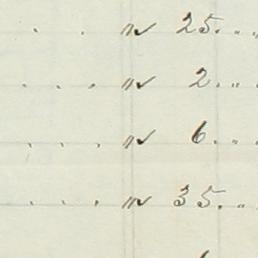 . . " 25 . . "
. . . " 2 . . . "
. . . " 6 . . . "
. . . " 35 . . "